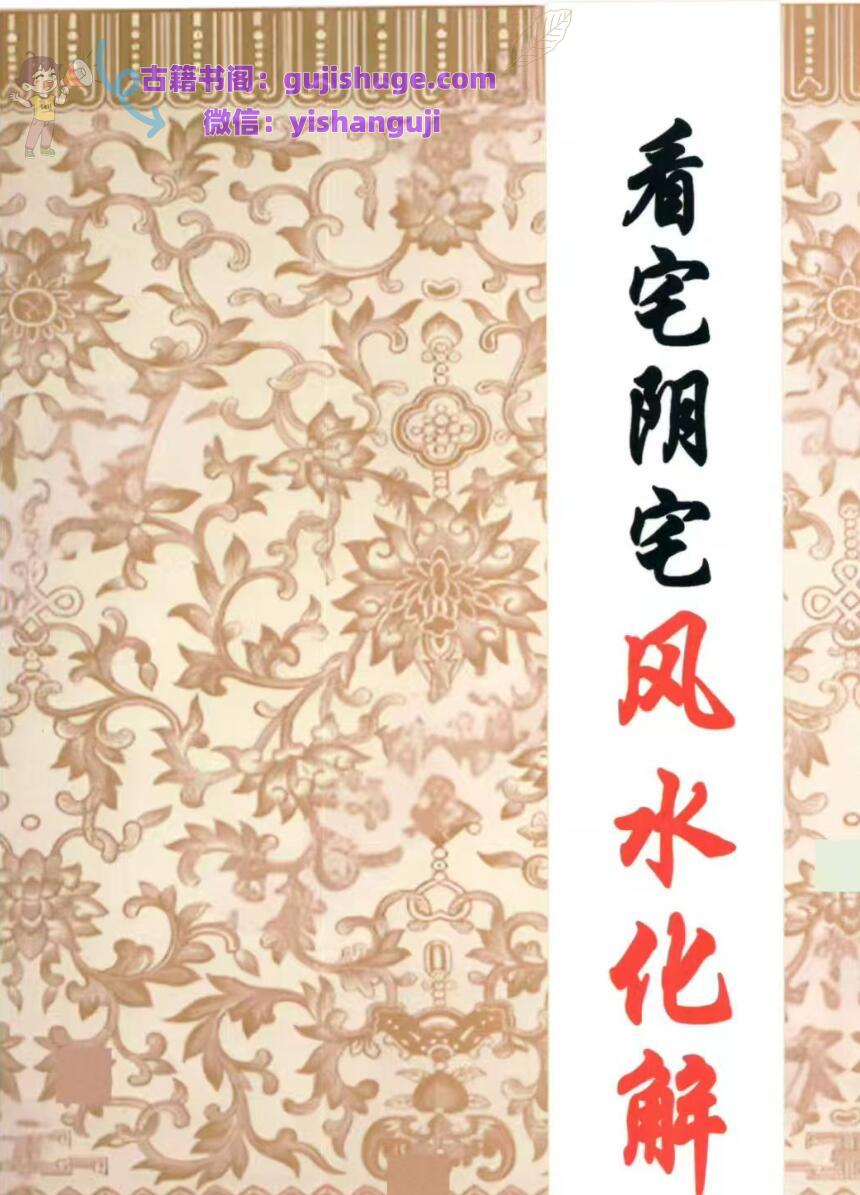 古籍书阁：gujishuge.com
微信：yishanguji
看宅阴宅风水化解